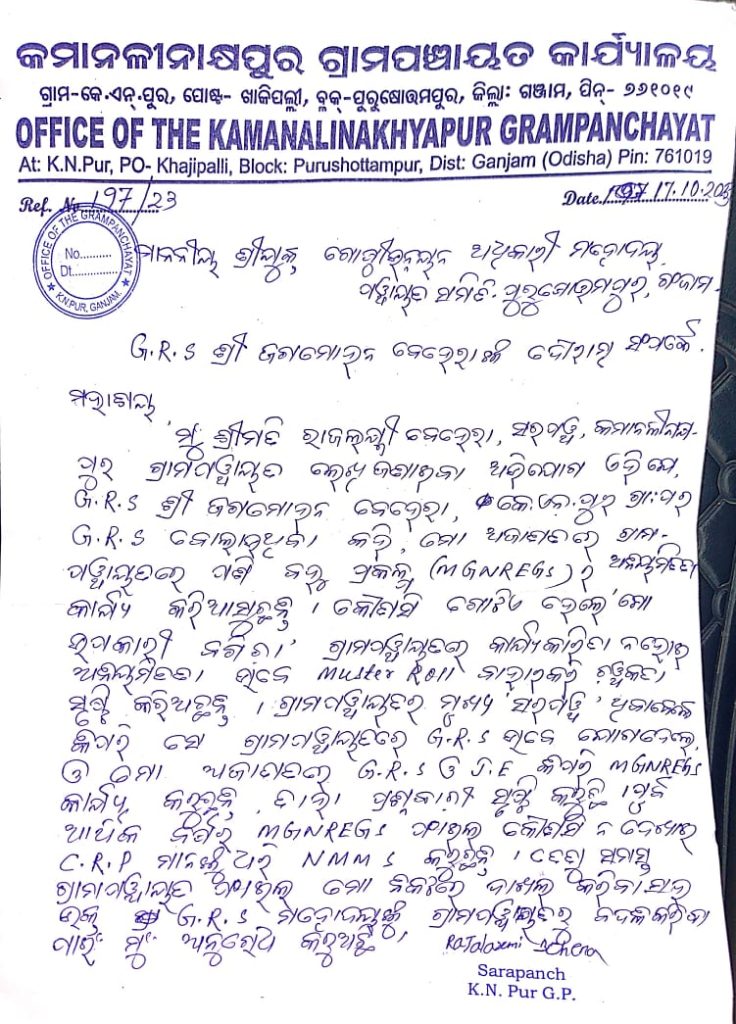 କମାନଳୀନାକ୍ଷପୁର ଗ୍ରାମପଞ୍ଚାୟତ କାର୍ଯ୍ୟାଳୟ
ଗ୍ରାମ-କେ.ଏନ୍.ପୁର, ପୋଷ୍ଟ- ଖାଜିପଲ୍ଲୀ, ବ୍ଲକ୍-ପୁରୁଷୋତ୍ତମପୁର, ଜିଲ୍ଲା: ଗଞ୍ଜାମ, ପିନ୍- ୭୬୧୦୧୯
OFFICE OF THE KAMANALINAKHYAPUR GRAMPANCHAYAT
At: K.N.Pur, PO- Khajipalli, Block: Purushottampur, Dist: Ganjam (Odisha) Pin: 761019
Ref. No 197/23 Date. 17.10.2023
OFFICE OF THE GRAMPANCHAYAT
No..........
Dt..........
K.N.PUR, GANJAM.
ମାନନୀୟ ଶ୍ରୀଯୁକ୍ତ ଗୋଷ୍ଠୀଉନ୍ନୟନ ଅଧିକାରୀ ମହୋଦୟ
ପଞ୍ଚାୟତ ସମିତି. ପୁରୁଷୋତ୍ତମପୁର, ଗଂଜାମ.
G.R.S ଶ୍ରୀ ଜଗମୋହନ ବେହେରାଙ୍କ ଦୌରାତ୍ମ ସଂପର୍କେ.
ମହାଶୟ
ମୁଁ ଶ୍ରୀମତି ରାଜଲକ୍ଷ୍ମୀ ବେହେରା, ସରପଞ୍ଚ, କମାନଳୀନାକ୍ଷ-
ପୁର ଗ୍ରାମପଞ୍ଚାୟତ ଜଣାଇବା ଅଭିଯୋଗ ଏହି ଯେ,
G.R.S ଶ୍ରୀ ଜଗମୋହନ ବେହେରା, କେ.ଏନ.ପୁର ଗ୍ରା:ପର
G.R.S ବୋଲାଉଥିବା ମୋ ଅଜାଣତରେ ଗ୍ରାମ-
ପଞ୍ଚାୟତରେ ପ୍ରକଳ୍ପ (MGNREGS) ର ଅନିୟମିତତା
କାର୍ଯ୍ୟ କରିଆସୁଛନ୍ତି । କୌଣସି ଗୋଟିଏ ହେଲେ ମୋ
ଗ୍ରାମପଞ୍ଚାୟତରେ ନହୋଇ
ଅନିୟମିତତା ଭାବେ Muster Roll
ସୃଷ୍ଟି କରିଅଛନ୍ତି । ଗ୍ରାମପଞ୍ଚାୟତର ମୁଖ୍ୟ ସରପଞ୍ଚ
କିପରି ସେ ଗ୍ରାମପଞ୍ଚାୟତରେ G.R.S ଭାବେ ଯୋଗଦେଲେ,
ଓ ମୋ ଅଜାଣତରେ G.R.S ଓ J.E କିପରି MGNREGS
କାର୍ଯ୍ୟ କରୁଛନ୍ତି ତାହା ପ୍ରଶ୍ନବାଚୀ ସୃଷ୍ଟି କରୁଛି । ପୂର୍ବ
ଆର୍ଥିକ ବର୍ଷର MGNREGS ଫାଇଲ କୌଣସି ନ ଦେଖାଇ
C.R.P ମାନଙ୍କୁ ଧରି NMMS କରୁଛନ୍ତି । ତେଣୁ ସମସ୍ତ
ଗ୍ରାମପଞ୍ଚାୟତ ଫାଇଲ ମୋ ନିକଟରେ ଦାଖଲ କରିବା ସହ
ଉକ୍ତ G.R.S ମହୋଦୟଙ୍କୁ ଗ୍ରାମପଞ୍ଚାୟତରୁ ବଦଳ କରିବା
ପାଇଁ ମୁଁ ଅନୁରୋଧ କରୁଅଛି ।
Rajalaxmi Behera
Sarapanch
K.N. Pur G.P.